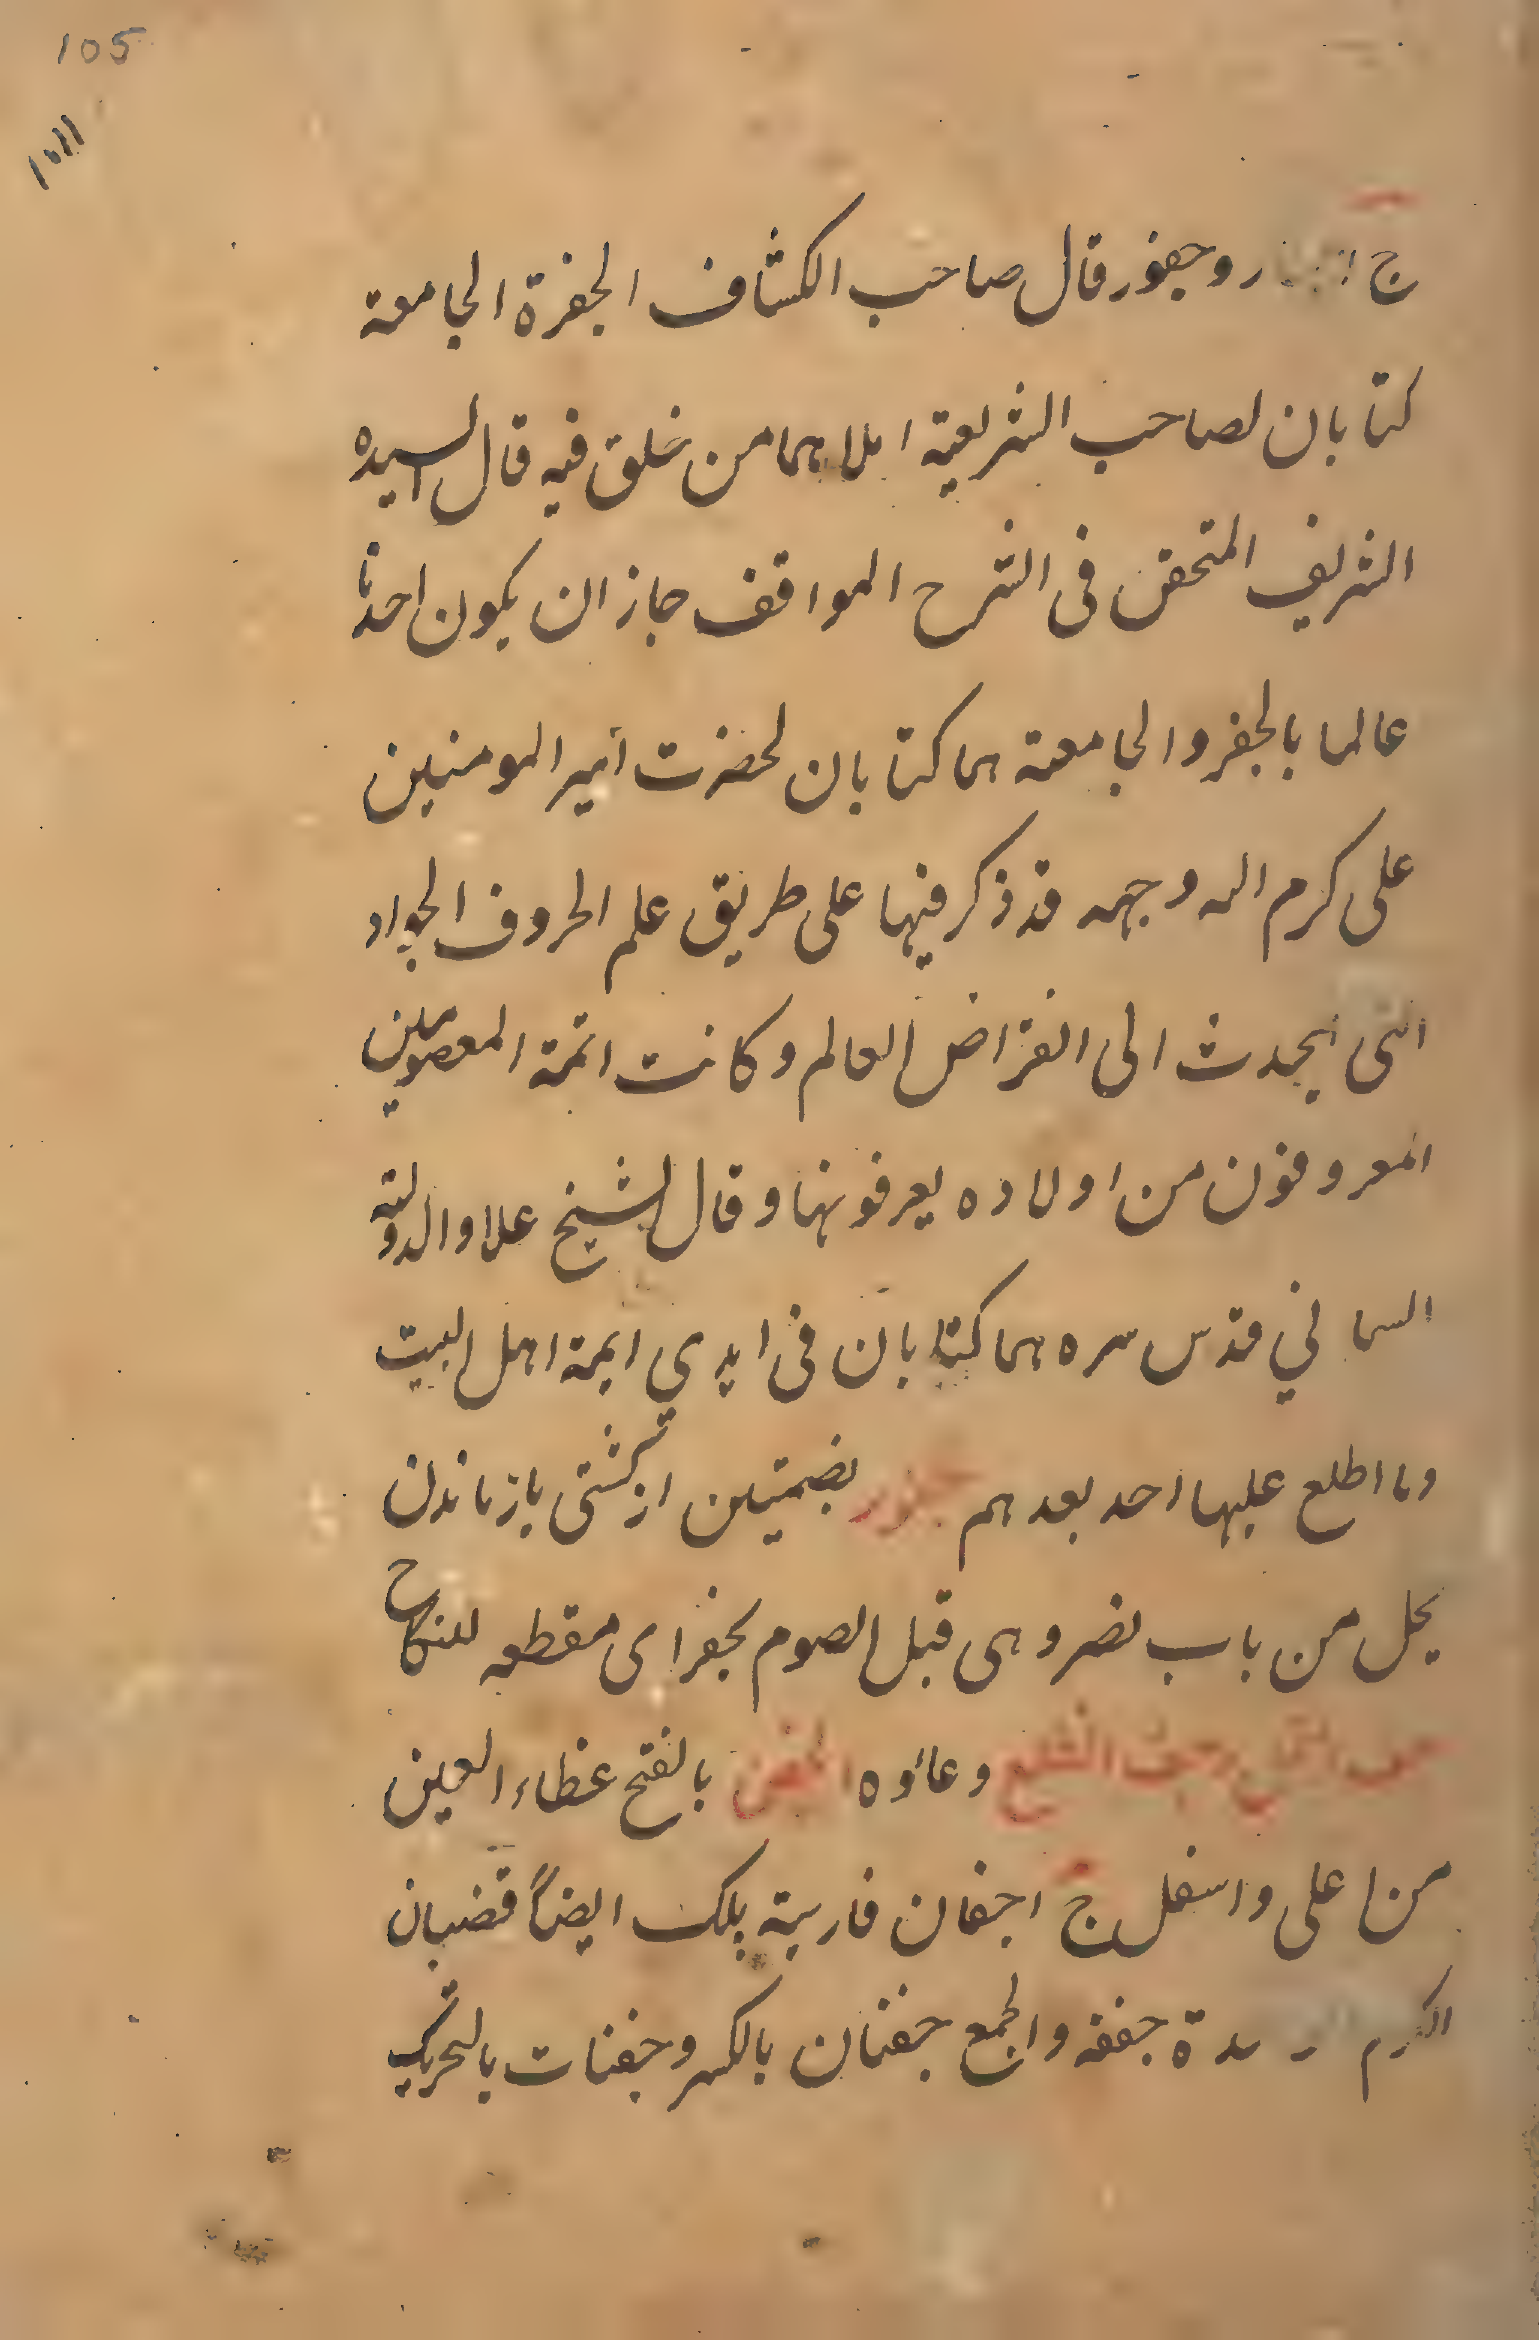 105
ج ار وجفور قال صاحب الكشاف الجفرة الجامعة
كتابان لصاحب الشريعة املاهما من خلق فيه قال السيده
الشريف المتحقق فى الشرح المواقف جاز ان يكون احدنا
عالما بالجفر والجامعة هما كتابان لحضرت أمير المومنين
على كرم الله وجهه قد ذكر فيها على طريق علم الحروف الجواد
التى يحدث الى انقراض العالم وكانت ائمة المعصومين
المعروفون من اولاده يعرفونها وقال الشيخ علاو الدولته
السمانى قدس سره هما كتابان فى ايدى ايمة اهل البيت
وما اطلع عليها احد بعدهم جفور بضمتين از كشتى بازماندن
يحل من باب نصر وهى قبل الصوم بجفر اى مقطعه للنكاح
وجف الطلع وعاؤه الجفن بالفتح غطاء العين
من اعلى واسفل ج اجفان فارسية پلك ايضاً قضبان
الكرم جفنه والجمع جفنان بالكسر وجفنات بالتحريك